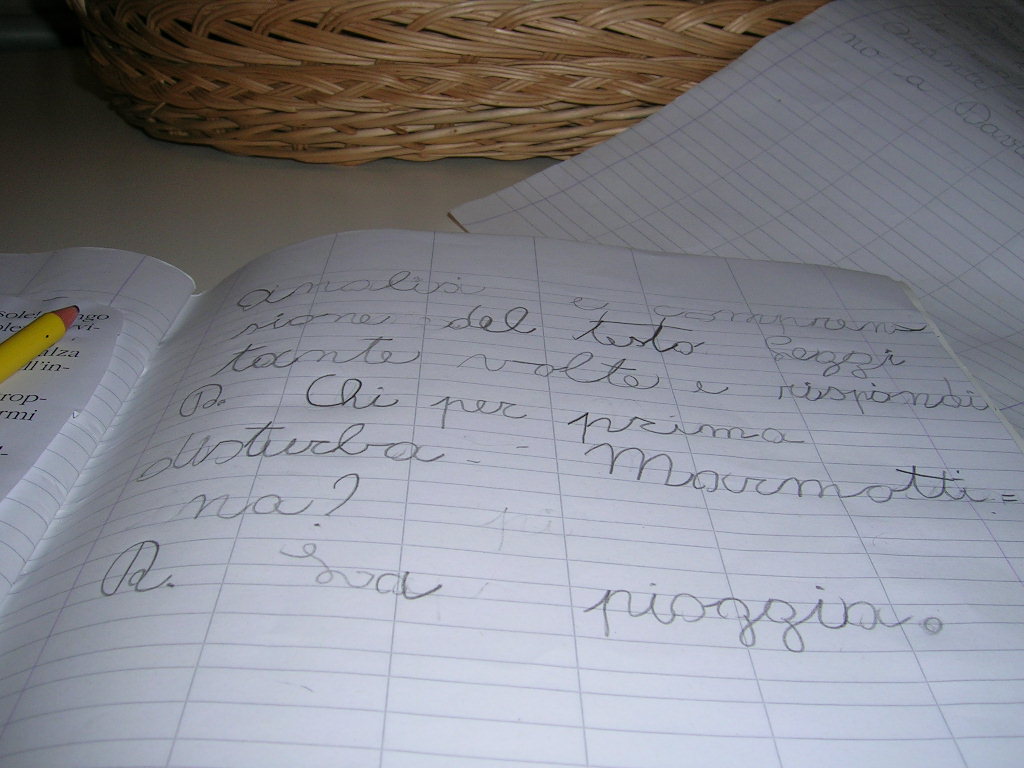 analisi e compren
sione del testo Leggi
tante volte e rispondi
D. Chi per prima
disturba Marmotti=
na?
R. La pioggia.
sole!
alza
ll'in-
rop-
rmi
no a